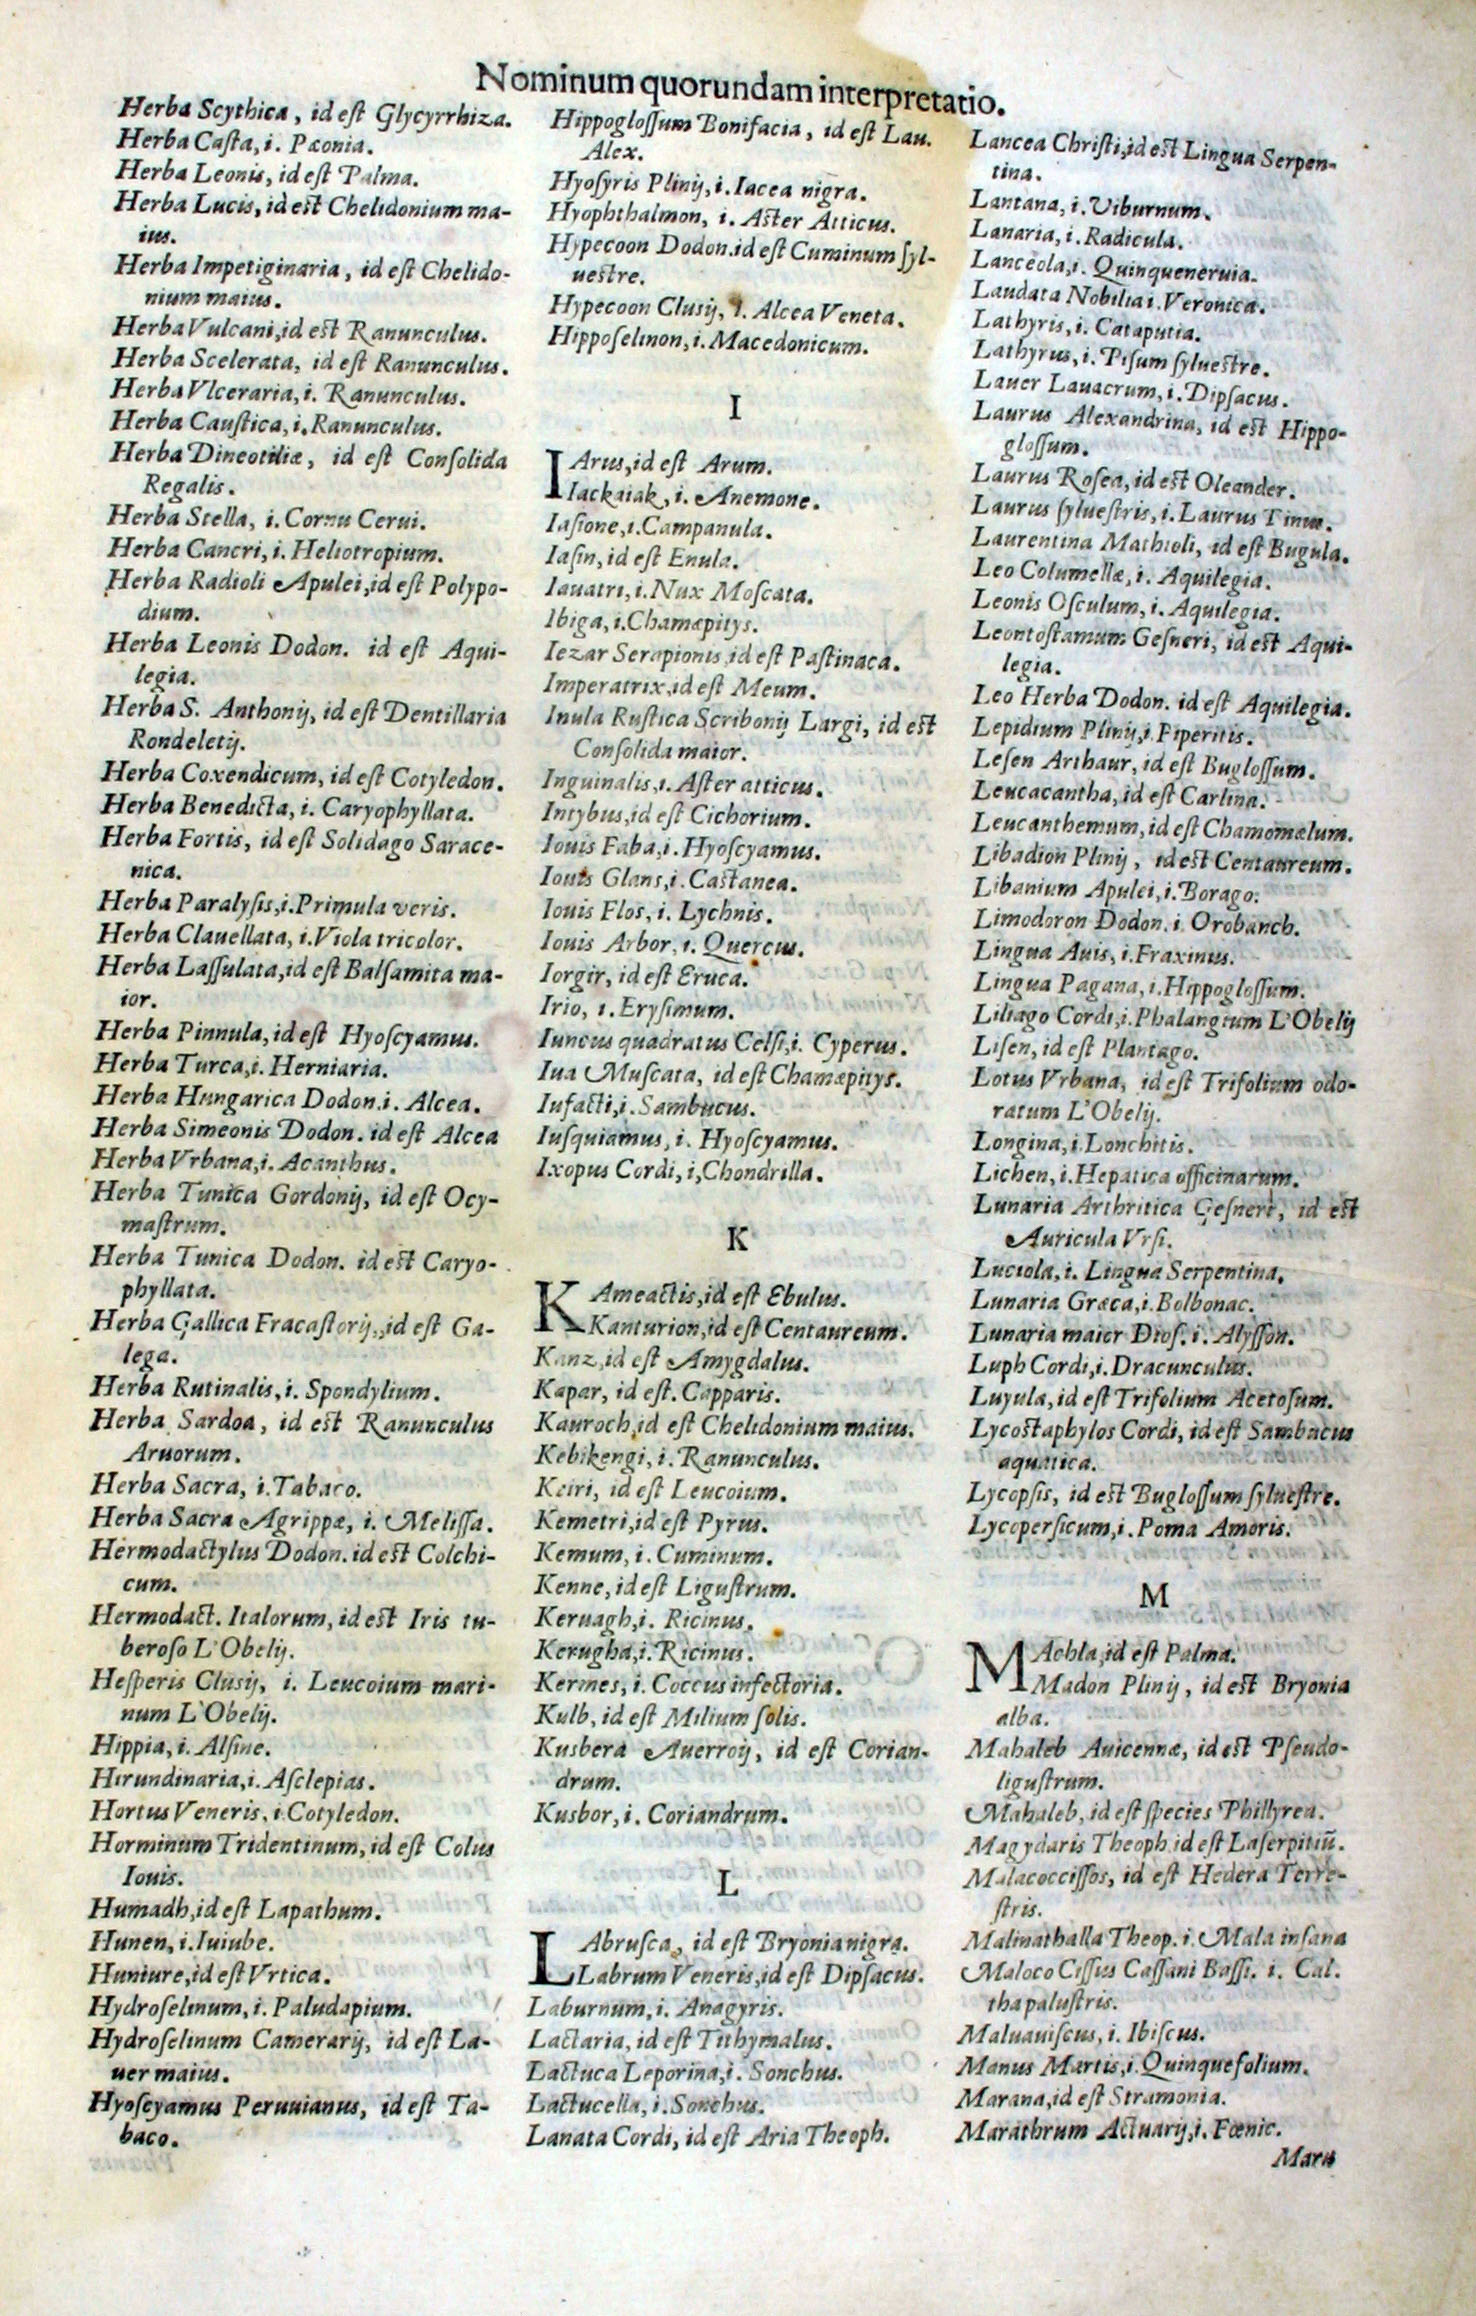 Nominum quorundam interpretatio.
Herba Scythica, id eſt Glycyrrhiza.
Herba Caſta, i. Pæonia.
Herba Leonis, id eſt Palma.
Herba Lucis, id eſt Chelidonium ma-
ius.
Herba Impetiginaria, id eſt Chelido-
nium maius.
Herba Vulcani, id eſt Ranunculus.
Herba Scelerata, id eſt Ranunculus.
Herba Vlceraria, i. Ranunculus.
Herba Cauſtica, i. Ranunculus.
Herba Dineotiliæ, id eſt Conſolida
Regalis.
Herba Stella, i. Cornu Cerui.
Herba Cancri, i. Heliotropium.
Herba Radioli Apulei, id eſt Polypo-
dium.
Herba Leonis Dodon. id eſt Aqui-
legia.
Herba S. Anthonij, id eſt Dentillaria
Rondeletij.
Herba Coxendicum, id eſt Cotyledon.
Herba Benedicta, i. Caryophyllata.
Herba Fortis, id eſt Solidago Sarace-
nica.
Herba Paralyſis, i. Primula veris.
Herba Clauellata, i. Viola tricolor.
Herba Laſſulata, id eſt Balſamita ma-
ior.
Herba Pinnula, id eſt Hyoſcyamus.
Herba Turca, i. Herniaria.
Herba Hungarica Dodon. i. Alcea.
Herba Simeonis Dodon. id eſt Alcea
Herba Vrbana, i. Acanthus.
Herba Tunica Gordonij, id eſt Ocy-
maſtrum.
Herba Tunica Dodon. id eſt Caryo-
phyllata.
Herba Gallica Fracaſtorij, id eſt Ga-
lega.
Herba Rutinalis, i. Spondylium.
Herba Sardoa, id eſt Ranunculus
Aruorum.
Herba Sacra, i. Tabaco.
Herba Sacra Agrippæ, i. Meliſſa.
Hermodactylus Dodon. id eſt Colchi-
cum.
Hermodact. Italorum, id eſt Iris tu-
beroſo L'Obelij.
Heſperis Cluſij, i. Leucoium mari-
num L'Obelij.
Hippia, i. Alſine.
Hirundinaria, i. Aſclepias.
Hortus Veneris, i. Cotyledon.
Horminum Tridentinum, id eſt Colus
Iouis.
Humadh, id eſt Lapathum.
Hunen, i. Iuiube.
Huniure, id eſt Vrtica.
Hydroſelinum, i. Paludapium.
Hydroſelinum Camerarij, id eſt La-
uer maius.
Hyoſcyamus Peruuianus, id eſt Ta-
baco.
Hippogloſſum Bonifacia, id eſt Lau.
Alex.
Hyoſyris Plinij, i. Iacea nigra.
Hyophthalmon, i. Aſter Atticus.
Hypecoon Dodon. id eſt Cuminum ſyl-
ueſtre.
Hypecoon Cluſij, i. Alcea Veneta.
Hippoſelinon, i. Macedonicum.
I
IArus, id eſt Arum.
Iackaiak, i. Anemone.
Iaſione, i. Campanula.
Iaſin, id eſt Enula.
Iauatri, i. Nux Moſcata.
Ibiga, i. Chamæpitys.
Iezar Serapionis id eſt Paſtinaca.
Imperatrix, id eſt Meum.
Inula Ruſtica Scribonij Largi, id eſt
Conſolida maior.
Inguinalis, i. Aſter atticus.
Intybus, id eſt Cichorium.
Iouis Faba, i. Hyoſcyamus.
Iouis Glans, i. Caſtanea.
Iouis Flos, i. Lychnis.
Iouis Arbor, i. Quercus.
Iorgir, id eſt Eruca.
Irio, i. Eryſimum.
Iuncus quadratus Celſi, i. Cyperus.
Iua Muſcata, id eſt Chamæpitys.
Iufacti, i. Sambucus.
Iuſquiamus, i. Hyoſcyamus.
Ixopus Cordi, i, Chondrilla.
K
KAmeactis, id eſt Ebulus.
Kanturion, id eſt Centaureum.
Kanz, id eſt Amygdalus.
Kapar, id eſt. Capparis.
Kauroch, id eſt Chelidonium maius.
Kebikengi, i. Ranunculus.
Keiri, id eſt Leucoium.
Kemetri, id eſt Pyrus.
Kemum, i. Cuminum.
Kenne, id eſt Liguſtrum.
Keruagh, i. Ricinus.
Kerugha, i. Ricinus.
Kermes, i. Coccus infectoria.
Kulb, id eſt Milium ſolis.
Kusbera Auerroij, id eſt Corian-
drum.
Kusbor, i. Coriandrum.
L
LAbruſca, id eſt Bryonia nigra.
Labrum Veneris, id eſt Dipſacus.
Laburnum, i. Anagyris.
Lactaria, id eſt Tithymalus.
Lactuca Leporina, i. Sonchus.
Lactucella, i. Sonchus.
Lanata Cordi, id eſt Aria Theoph.
Lancea Chriſti, id eſt Lingua Serpen-
tina.
Lantana, i. Viburnum.
Lanaria, i. Radicula.
Lanceola, i. Quinqueneruia.
Laudata Nobilia i. Veronica.
Lathyris, i. Cataputia.
Lathyrus, i. Piſum ſylueſtre.
Lauer Lauacrum, i. Dipſacus.
Laurus Alexandrina, id eſt Hippo-
gloſſum.
Laurus Roſea, id eſt Oleander.
Laurus ſylueſtris, i. Laurus Tinus.
Laurentina Mathioli, id eſt Bugula.
Leo Columellæ, i. Aquilegia.
Leonis Oſculum, i. Aquilegia.
Leontoſtamum Geſneri, id eſt Aqui-
legia.
Leo Herba Dodon. id eſt Aquilegia.
Lepidium Plinij, i. Piperitis.
Leſen Arthaur, id eſt Bugloſſum.
Leucacantha, id eſt Carlina.
Leucanthemum, id eſt Chamomælum.
Libadion Plinij, id eſt Centaureum.
Libanium Apulei, i. Borago.
Limodoron Dodon. i. Orobanch.
Lingua Auis, i. Fraxinus.
Lingua Pagana, i. Hippogloſſum.
Liliago Cordi, i. Phalangium L'Obelij
Liſen, id eſt Plantago.
Lotus Vrbana, id eſt Trifolium odo-
ratum L'Obelij.
Longina, i. Lonchitis.
Lichen, i. Hepatica officinarum.
Lunaria Arthritica Geſneri, id eſt
Auricula Vrſi.
Luciola, i. Lingua Serpentina.
Lunaria Græca, i. Bolbonac.
Lunaria maior Dioſ. i. Alyſſon.
Luph Cordi, i. Dracunculus.
Luyula, id eſt Trifolium Acetoſum.
Lycoſtaphylos Cordi, id eſt Sambucus
aquatica.
Lycopſis, id eſt Bugloſſum ſylueſtre.
Lycoperſicum, i. Poma Amoris.
M
MAchla, id eſt Palma.
Madon Plinij, id eſt Bryonia
alba.
Mahaleb Auicennæ, id eſt Pſeudo-
liguſtrum.
Mahaleb, id eſt ſpecies Phillyrea.
Magydaris Theoph id eſt Laſerpitiũ.
Malacociſſos, id eſt Hedera Terre-
ſtris.
Malinathalla Theop. i. Mala inſana
Maloco Ciſſus Caſſani Baſſi. i. Cal.
tha paluſtris.
Maluauiſcus, i. Ibiſcus.
Manus Martis, i. Quinquefolium.
Marana, id eſt Stramonia.
Marathrum Actuarij, i. Fœnic.
Maru